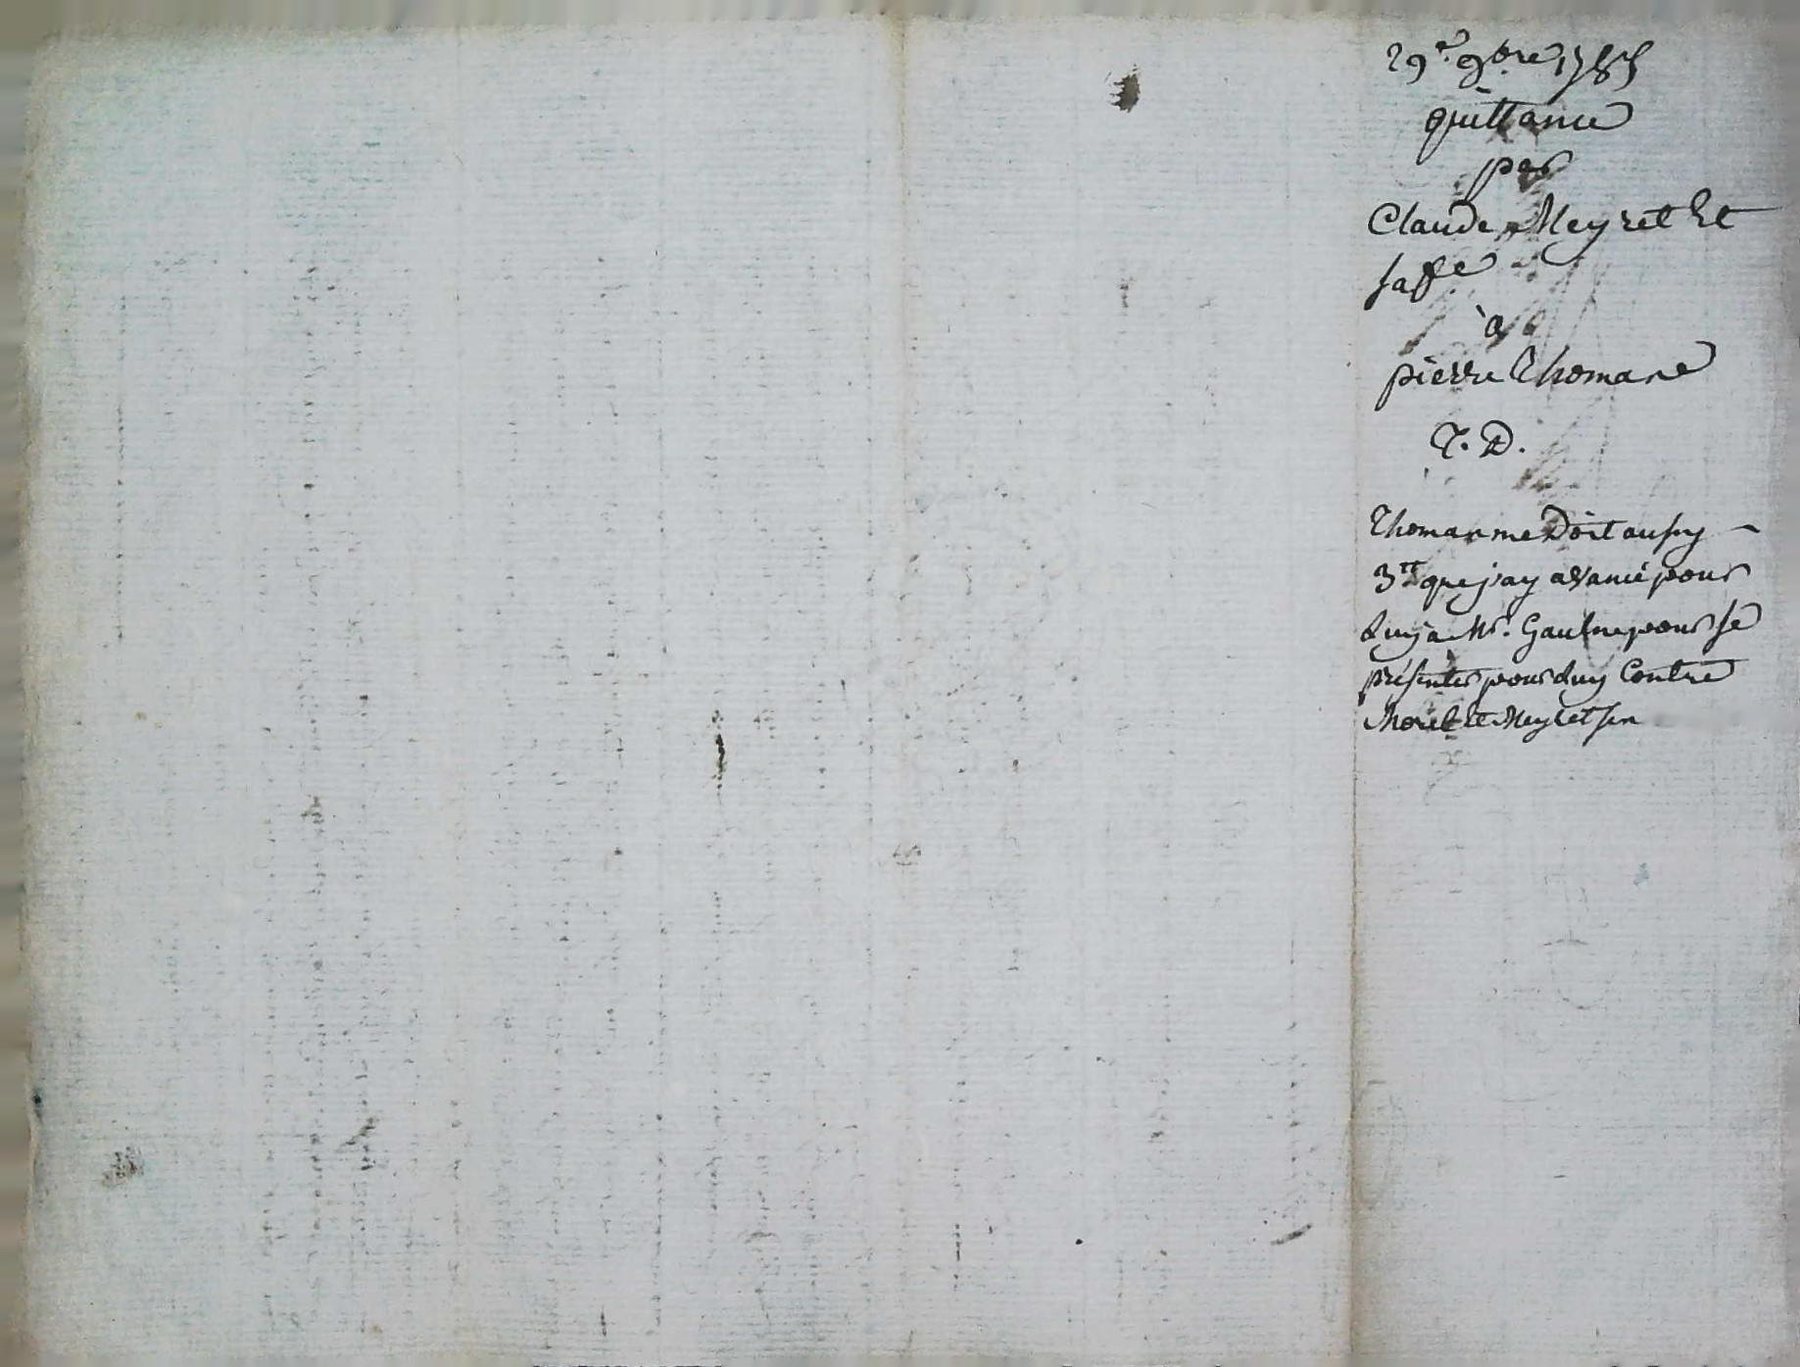 29e 9bre 1785
quittance
par
Claude Meyret Et
sa ffe
à
pierre Thomas
T. D.
Thomas me Doit aussy
3tt que j'ay avancé pour
Luy à Mr. Gaulne pour se
présenter pour Luy Contre
Morel et Meyret